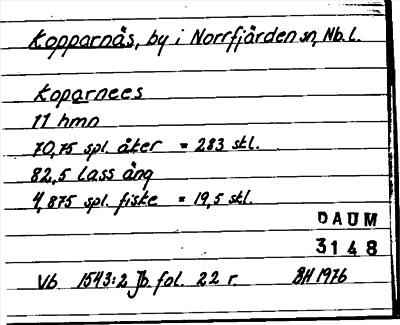 Kopparnäs, by i Norrfjärden sn, Nb. l.
Koparnees
11 hmn
70,75 spl. åker = 283 skl.
82,5 lass äng
4,875 spl. fiske = 19,5 skl.
DAUM
3148
Vb 1543:2 Jb. fol. 22 r. BH 1976